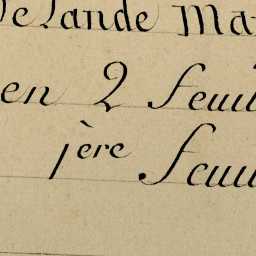 de Lande Ma
en 2 feuil
1ère feuil